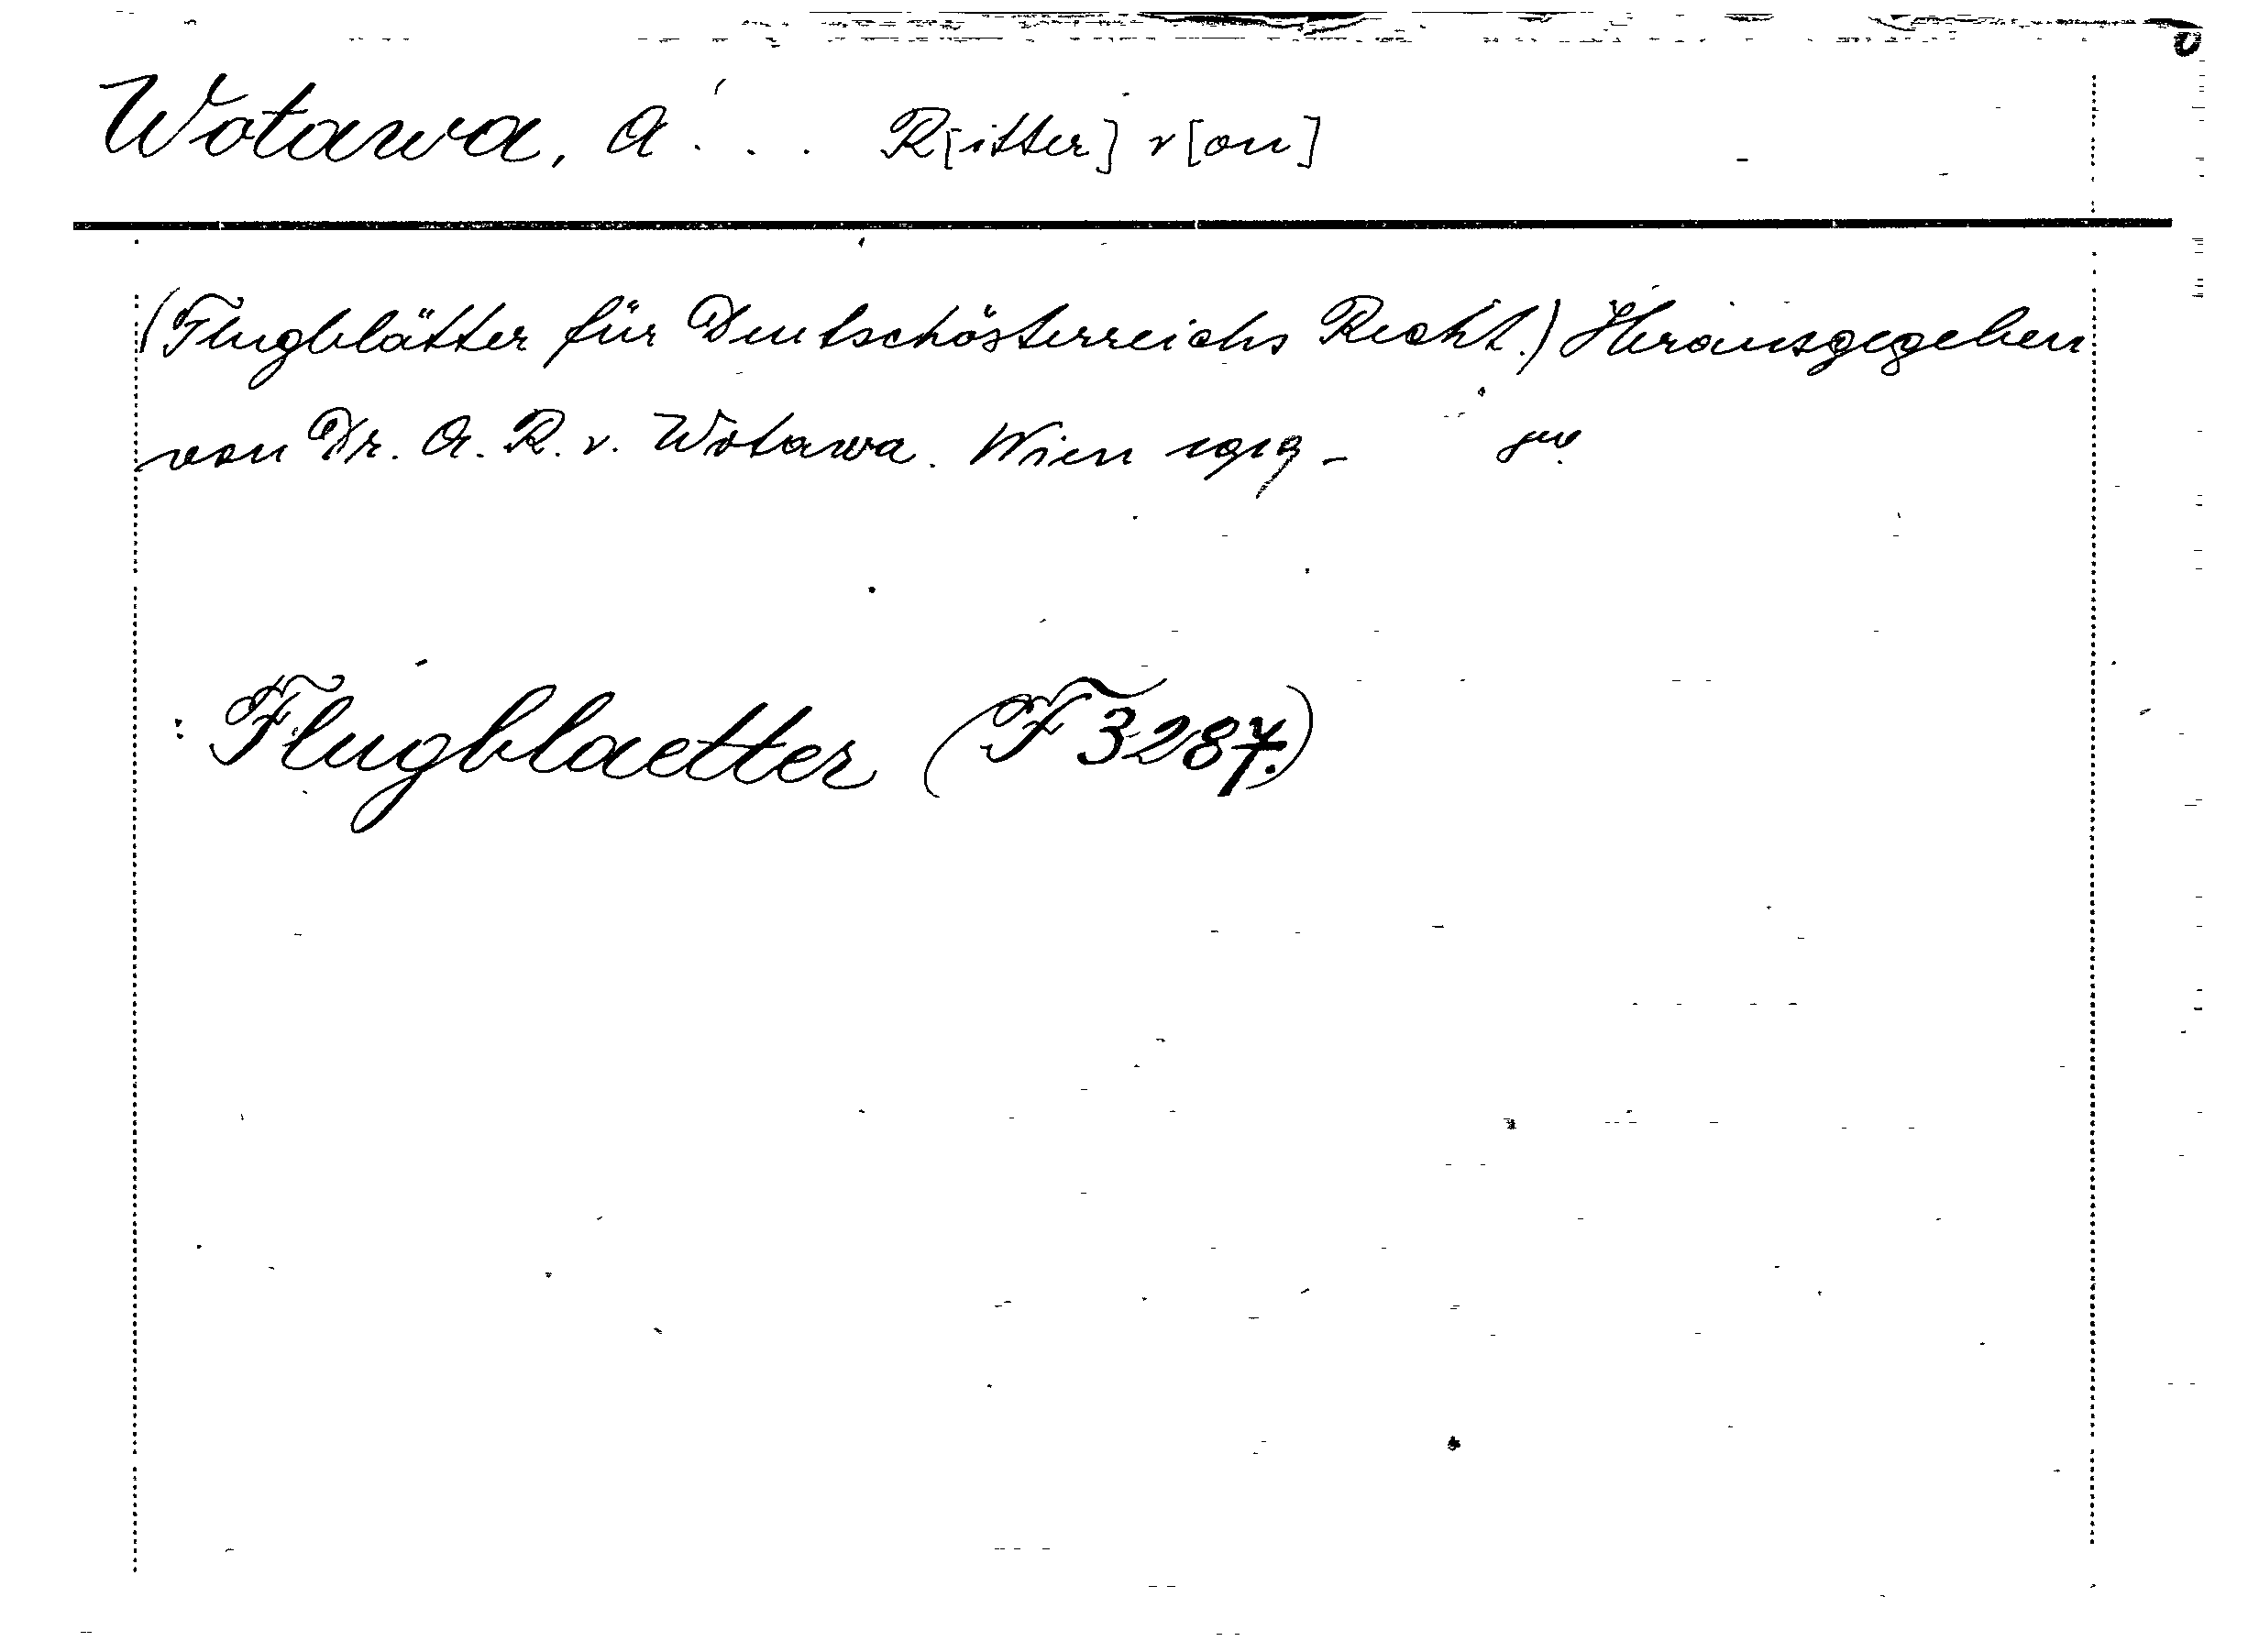 Wotawa, A... R[itter] v[on]
(Flugblätter für Deutschösterreichs Recht.) Herausgegeben
von Dr. A. R. v. Wotawa. Wien 1919 - gr. 8°
: Flugblaetter (F 3287.)